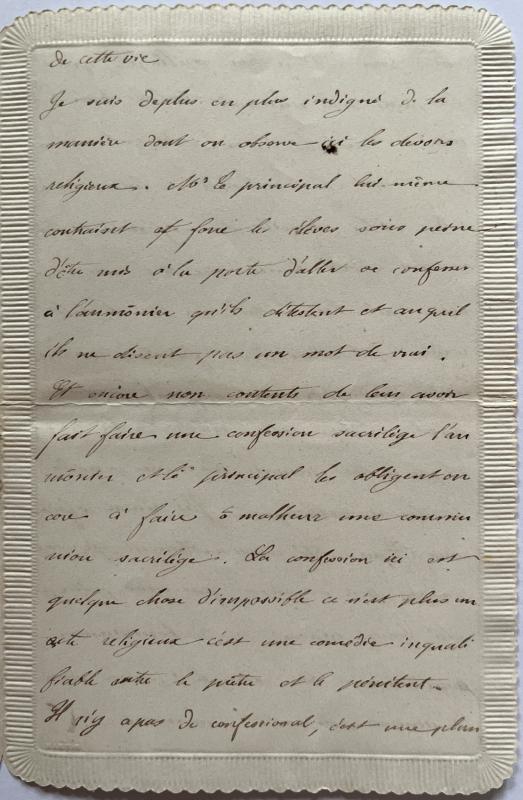 de cette vie
Je suis deplus en plus indigné de la
manière dont on observe ici les devoirs
religieux. Mr le principal lui-même
contraint et force les élèves sous peine
d'être mis à la porte d'aller se confesser
à l'aumônier qu'ils détestent et auquel
ils ne disent pas un mot de vrai.
Et encore non contents de leur avoir
fait faire une confession sacrilège l'au
mônier et le principal les obligent en
core à faire ô malheur une commu
nion sacrilège. La confession ici est
quelque chose d'impossible ce n'est plus un
acte religieux c'est une comédie inquali
fiable entre le prêtre et le pénitent.
Il n'y a pas de confessional, c'est une